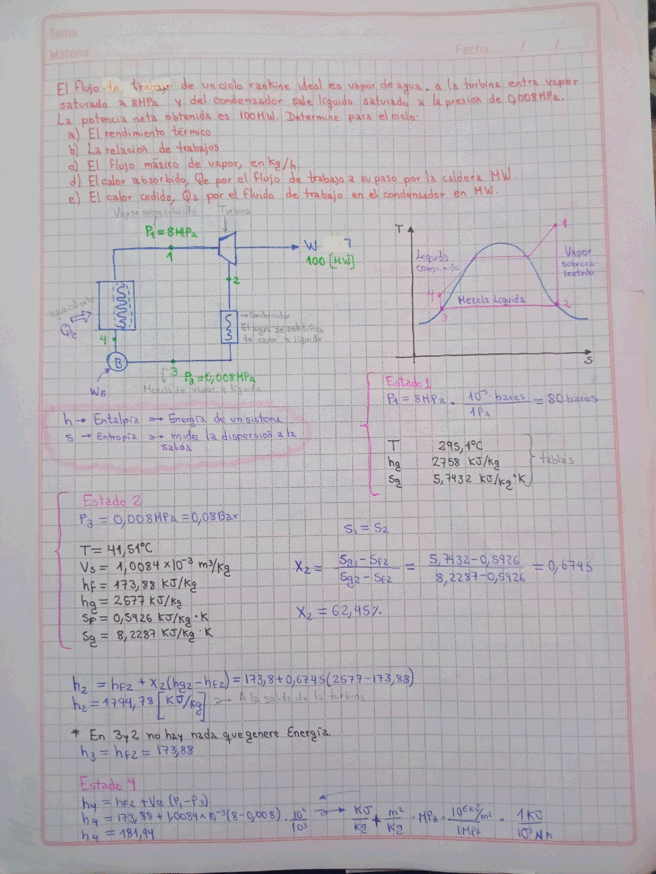 Tema
Materia
Fecha / /
El flujo de trabajo de un ciclo rankine ideal es vapor de agua. a la turbina entra vapor
saturado a 8MPa y del condensador sale líquido saturado a la presion de 0,008MPa.
La potencia neta obtenida es 100MW. Determine para el ciclo:
a) El rendimiento térmico
b) La relacion de trabajos
c) El Flujo másico de vapor, en kg/h.
d) El calor absorbido, Qe por el flujo de trabajo a su paso por la caldera MW.
e) El calor cedido, Qs por el fluido de trabajo en el condensador en MW.
Turbina
P₁ = 8MPa
1
W 7
100 [MW]
2
Condensador
de vapor a líquido
Qe
4
B
WB
3
P₃ = 0,008MPa
Mezcla de vapor y líquido
T
1
Líquido
Vapor
4
Mezcla Líquida
3
2
S
h → Entalpía → Energía de un sistema
s → Entropía → mide la dispersion a la
salida
Estado 1
P₁ = 8MPa · 10⁻⁵ bares / 1Pa = 80 bares
T 295,1°C
hg 2758 KJ/kg
Sg 5,7432 KJ/kg·K
tablas
Estado 2
P₃ = 0,008MPa = 0,08Bar
T = 41,51°C
Vs = 1,0084 x10⁻³ m³/kg
hf = 173,88 KJ/kg
hg = 2577 KJ/kg
Sf = 0,5926 KJ/kg·K
Sg = 8,2287 KJ/kg·K
S₁ = S₂
X₂ = Sg₁ - Sf₂ / Sg₂ - Sf₂ = 5,7432 - 0,5926 / 8,2287 - 0,5926 = 0,6745
X₂ = 62,45%
h₂ = hf₂ + x₂(hg₂ - hf₂) = 173,8 + 0,6745(2577 - 173,88)
h₂ = 1794,78 [KJ/kg] → A la salida de la turbina
* En 3 y 2 no hay nada que genere Energía.
h₃ = hf₂ = 173,88
Estado 4
h₄ = hf₂ + Va (P₁ - P₃)
h₄ = 173,88 + 1,0084 x10⁻³ (8 - 0,008) · 10⁶ / 10³ → KJ/kg + m²/kg · MPa · / 1MPa · 1KJ
h₄ = 181,94